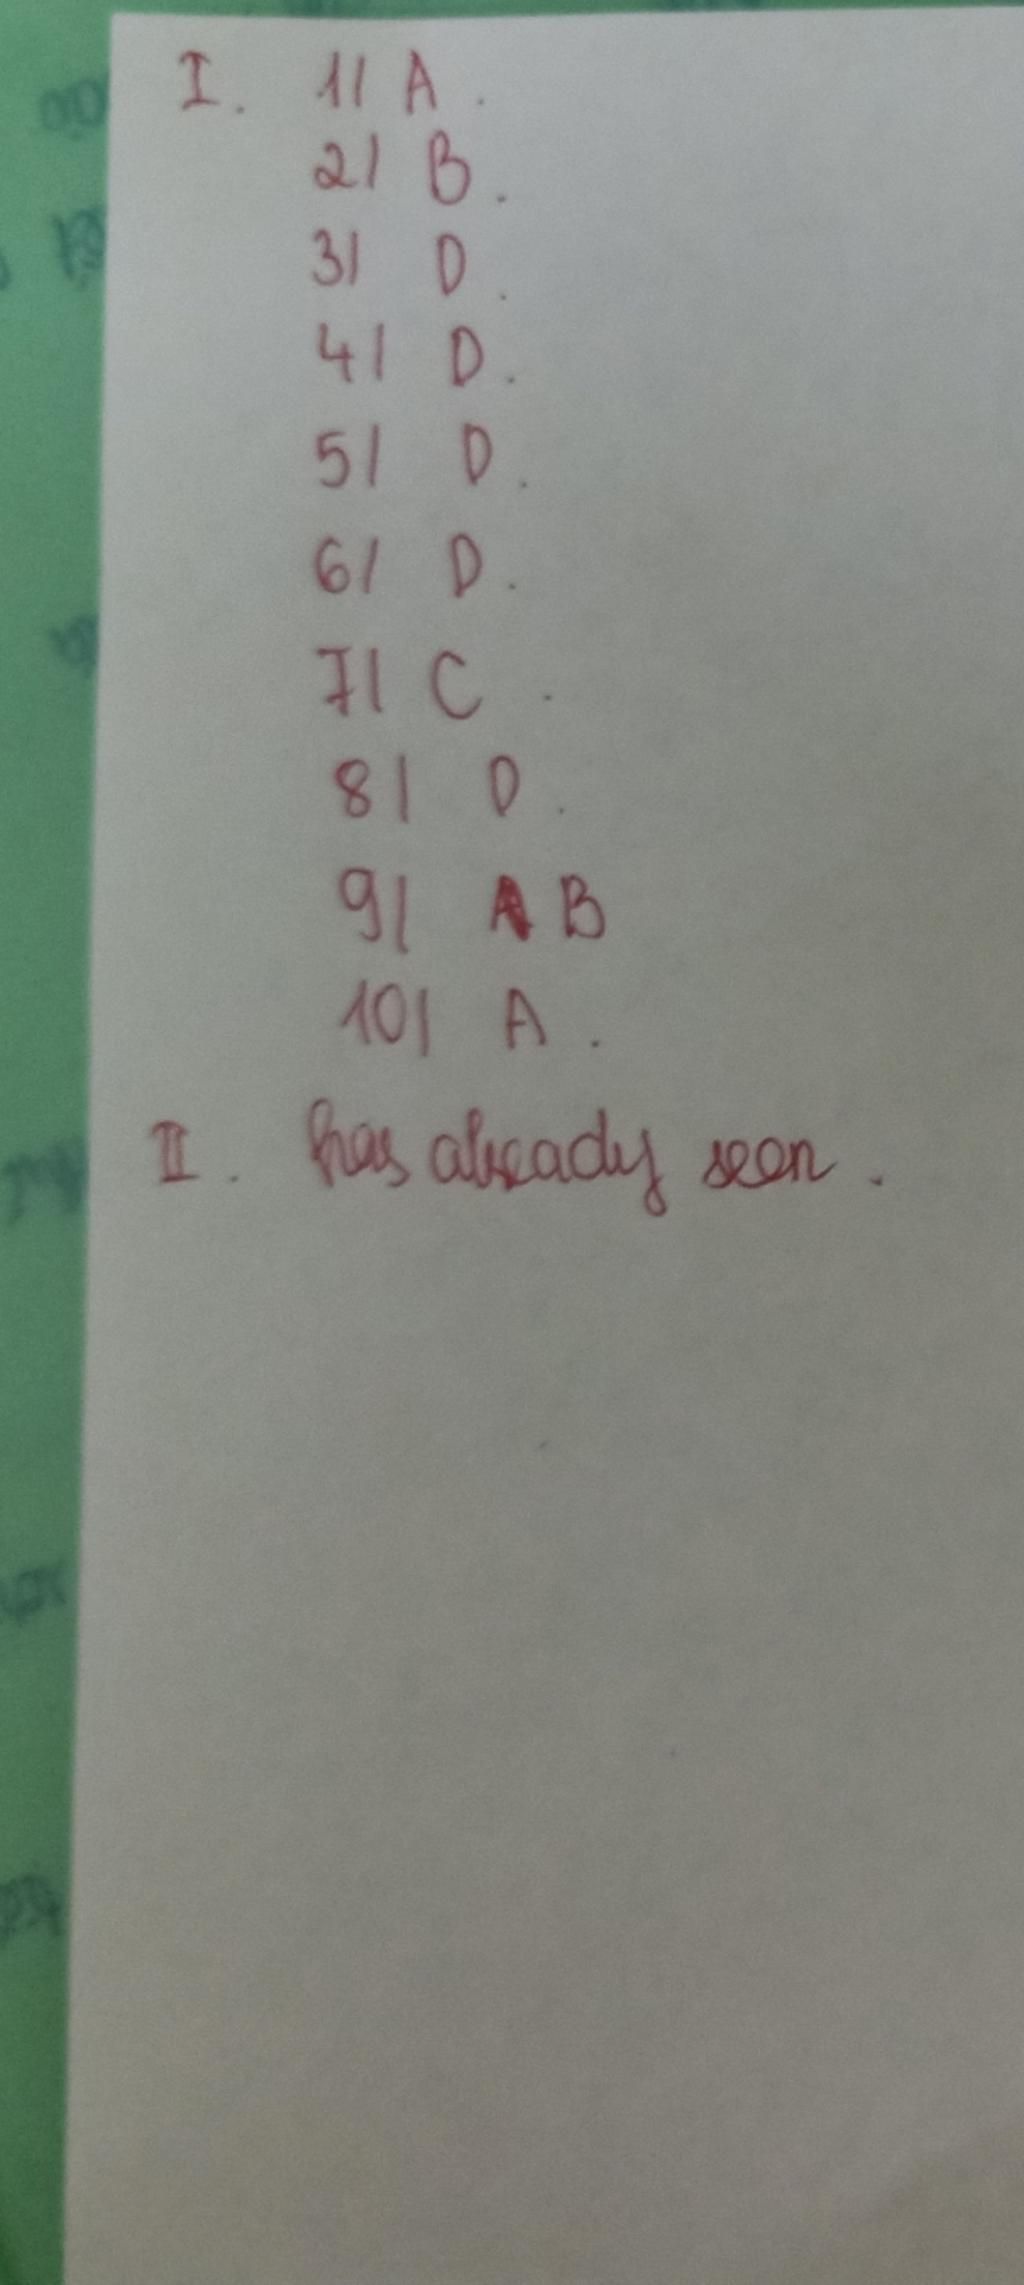 I. 1/ A.
2/ B.
3/ D.
4/ D.
5/ D.
6/ D.
7/ C.
8/ D.
9/ A B
10/ A.
II. has already seen.